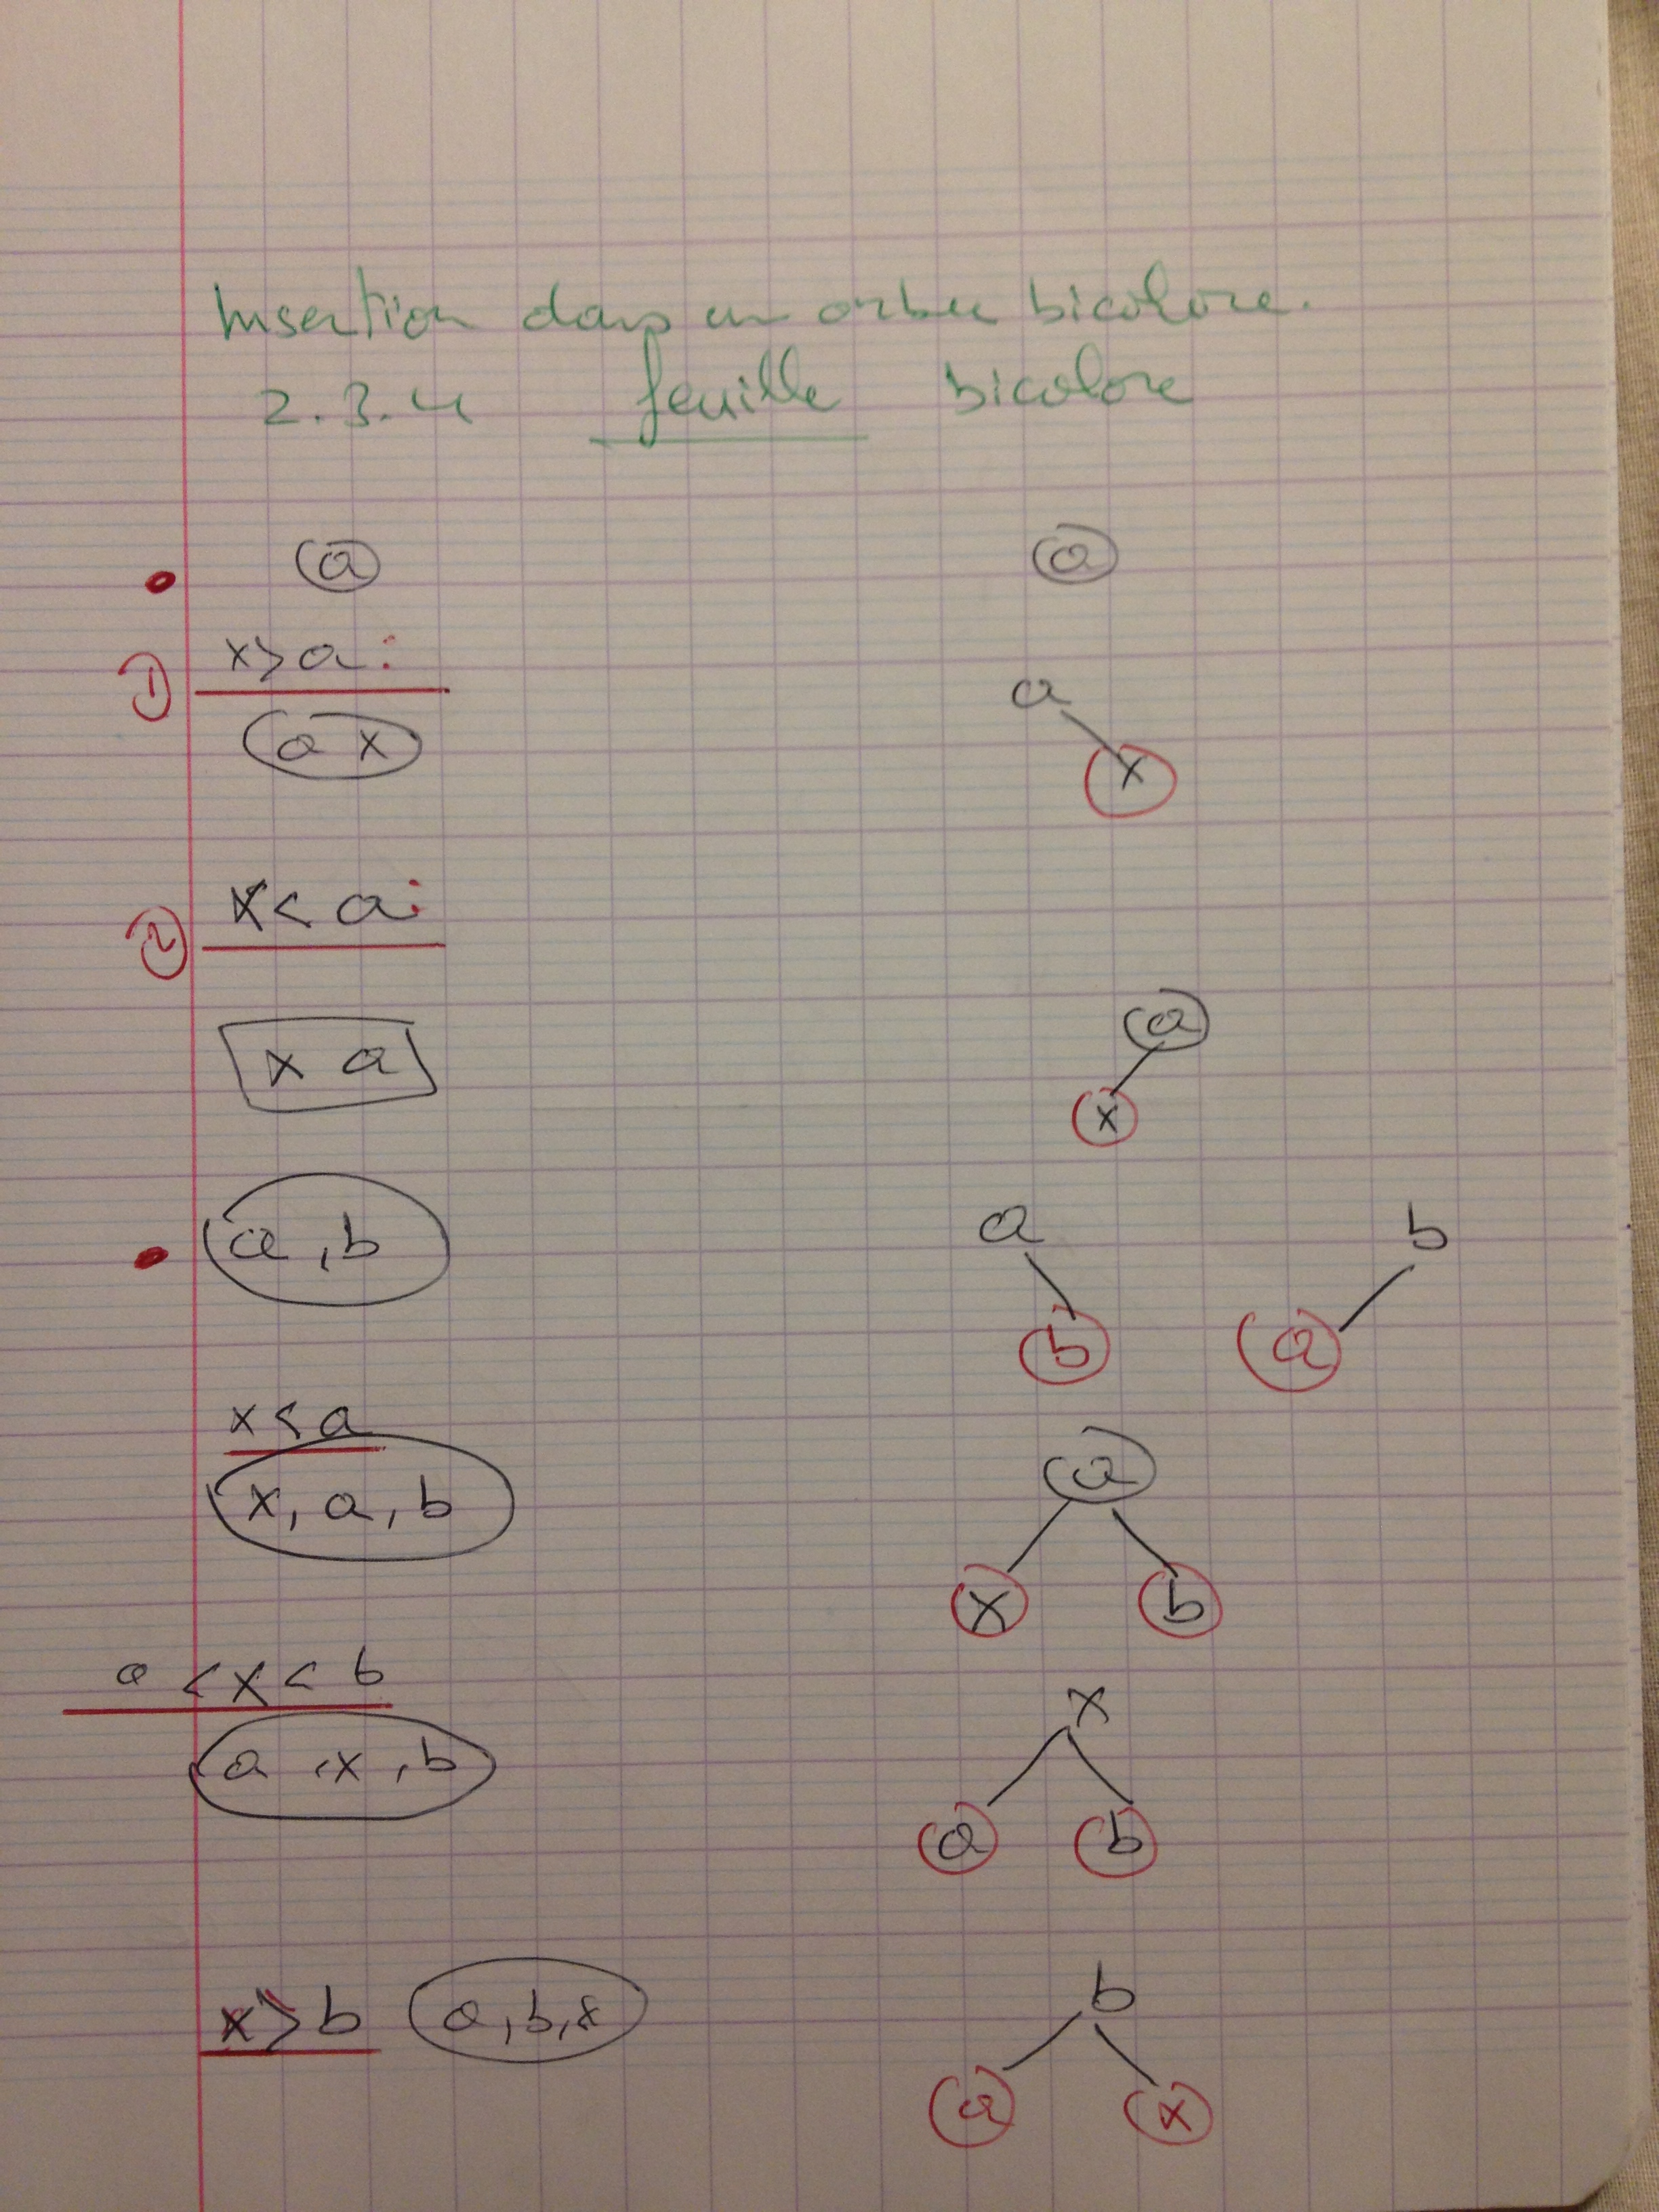 Insertion dans un arbre bicolore.
2.3.4 feuille bicolore
a a
① x > a :
a
a x
x
② x < a :
a
x a
x
a b
a , b
b a
x < a
a
x, a, b
x b
a < x < b
x
a , x , b
a b
b
x > b a, b, x
a x